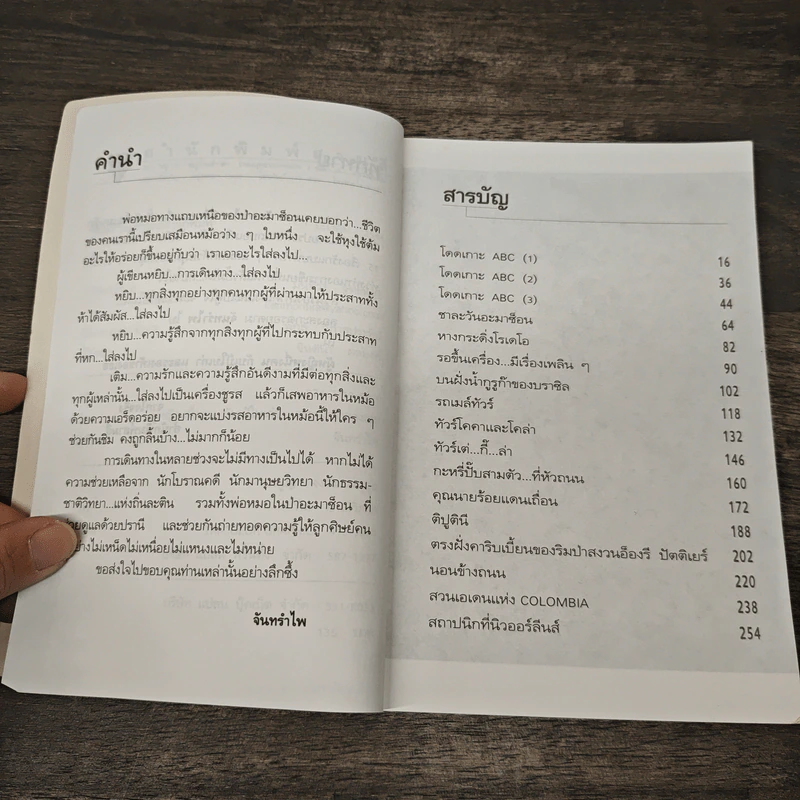 คำนำ
พ่อหมอทางแถบเหนือของป่าอะมาซ็อนเคยบอกว่า...ชีวิต
ของคนเรานี้เปรียบเสมือนหม้อว่าง ๆ ใบหนึ่ง จะใช้หุงใช้ต้ม
อะไรให้อร่อยก็ขึ้นอยู่กับว่า เราเอาอะไรใส่ลงไป...
ผู้เขียนหยิบ...การเดินทาง...ใส่ลงไป
หยิบ...ทุกสิ่งทุกอย่างทุกคนทุกผู้ที่ผ่านมาให้ประสาททั้ง
ห้าได้สัมผัส...ใส่ลงไป
หยิบ...ความรู้สึกจากทุกสิ่งทุกผู้ที่ไปกระทบกับประสาท
ที่หก...ใส่ลงไป
เติม...ความรักและความรู้สึกอันดีงามที่มีต่อทุกสิ่งและ
ทุกผู้เหล่านั้น...ใส่ลงไปเป็นเครื่องชูรส แล้วก็เสพอาหารในหม้อ
ด้วยความเอร็ดอร่อย อยากจะแบ่งรสอาหารในหม้อนี้ให้ใคร ๆ
ช่วยกันชิม คงถูกลิ้นบ้าง...ไม่มากก็น้อย
การเดินทางในหลายช่วงจะไม่มีทางเป็นไปได้ หากไม่ได้
ความช่วยเหลือจาก นักโบราณคดี นักมานุษยวิทยา นักธรรม-
ชาติวิทยา...แห่งถิ่นละติน รวมทั้งพ่อหมอในป่าอะมาซ็อน ที่
ช่วยดูแลด้วยปรานี และช่วยกันถ่ายทอดความรู้ให้ลูกศิษย์คน
อย่างไม่เหน็ดไม่เหนื่อยไม่แหนงและไม่หน่าย
ขอส่งใจไปขอบคุณท่านเหล่านั้นอย่างลึกซึ้ง
จันทรำไพ
สารบัญ
โดดเกาะ ABC (1) 16
โดดเกาะ ABC (2) 36
โดดเกาะ ABC (3) 44
ชาละวันอะมาซ็อน 64
หางกระดิ่งโรเดโอ 82
รอขึ้นเครื่อง...มีเรื่องเพลิน ๆ 90
บนฝั่งน้ำกูรูก๊าของบราซิล 102
รถเมล์ทัวร์ 118
ทัวร์โคคาและโคล่า 132
ทัวร์เต่...กี๊...ล่า 146
กะหรี่ปั๊บสามตัว...ที่หัวถนน 160
คุณนายร้อยแดนเถื่อน 172
ติปูตินี 188
ตรงฝั่งคาริบเบี้ยนของริมป่าสงวนอ็องรี ปัตติเยร์ 202
นอนข้างถนน 220
สวนเอเดนแห่ง COLOMBIA 238
สถาปนิกที่นิวออร์ลีนส์ 254